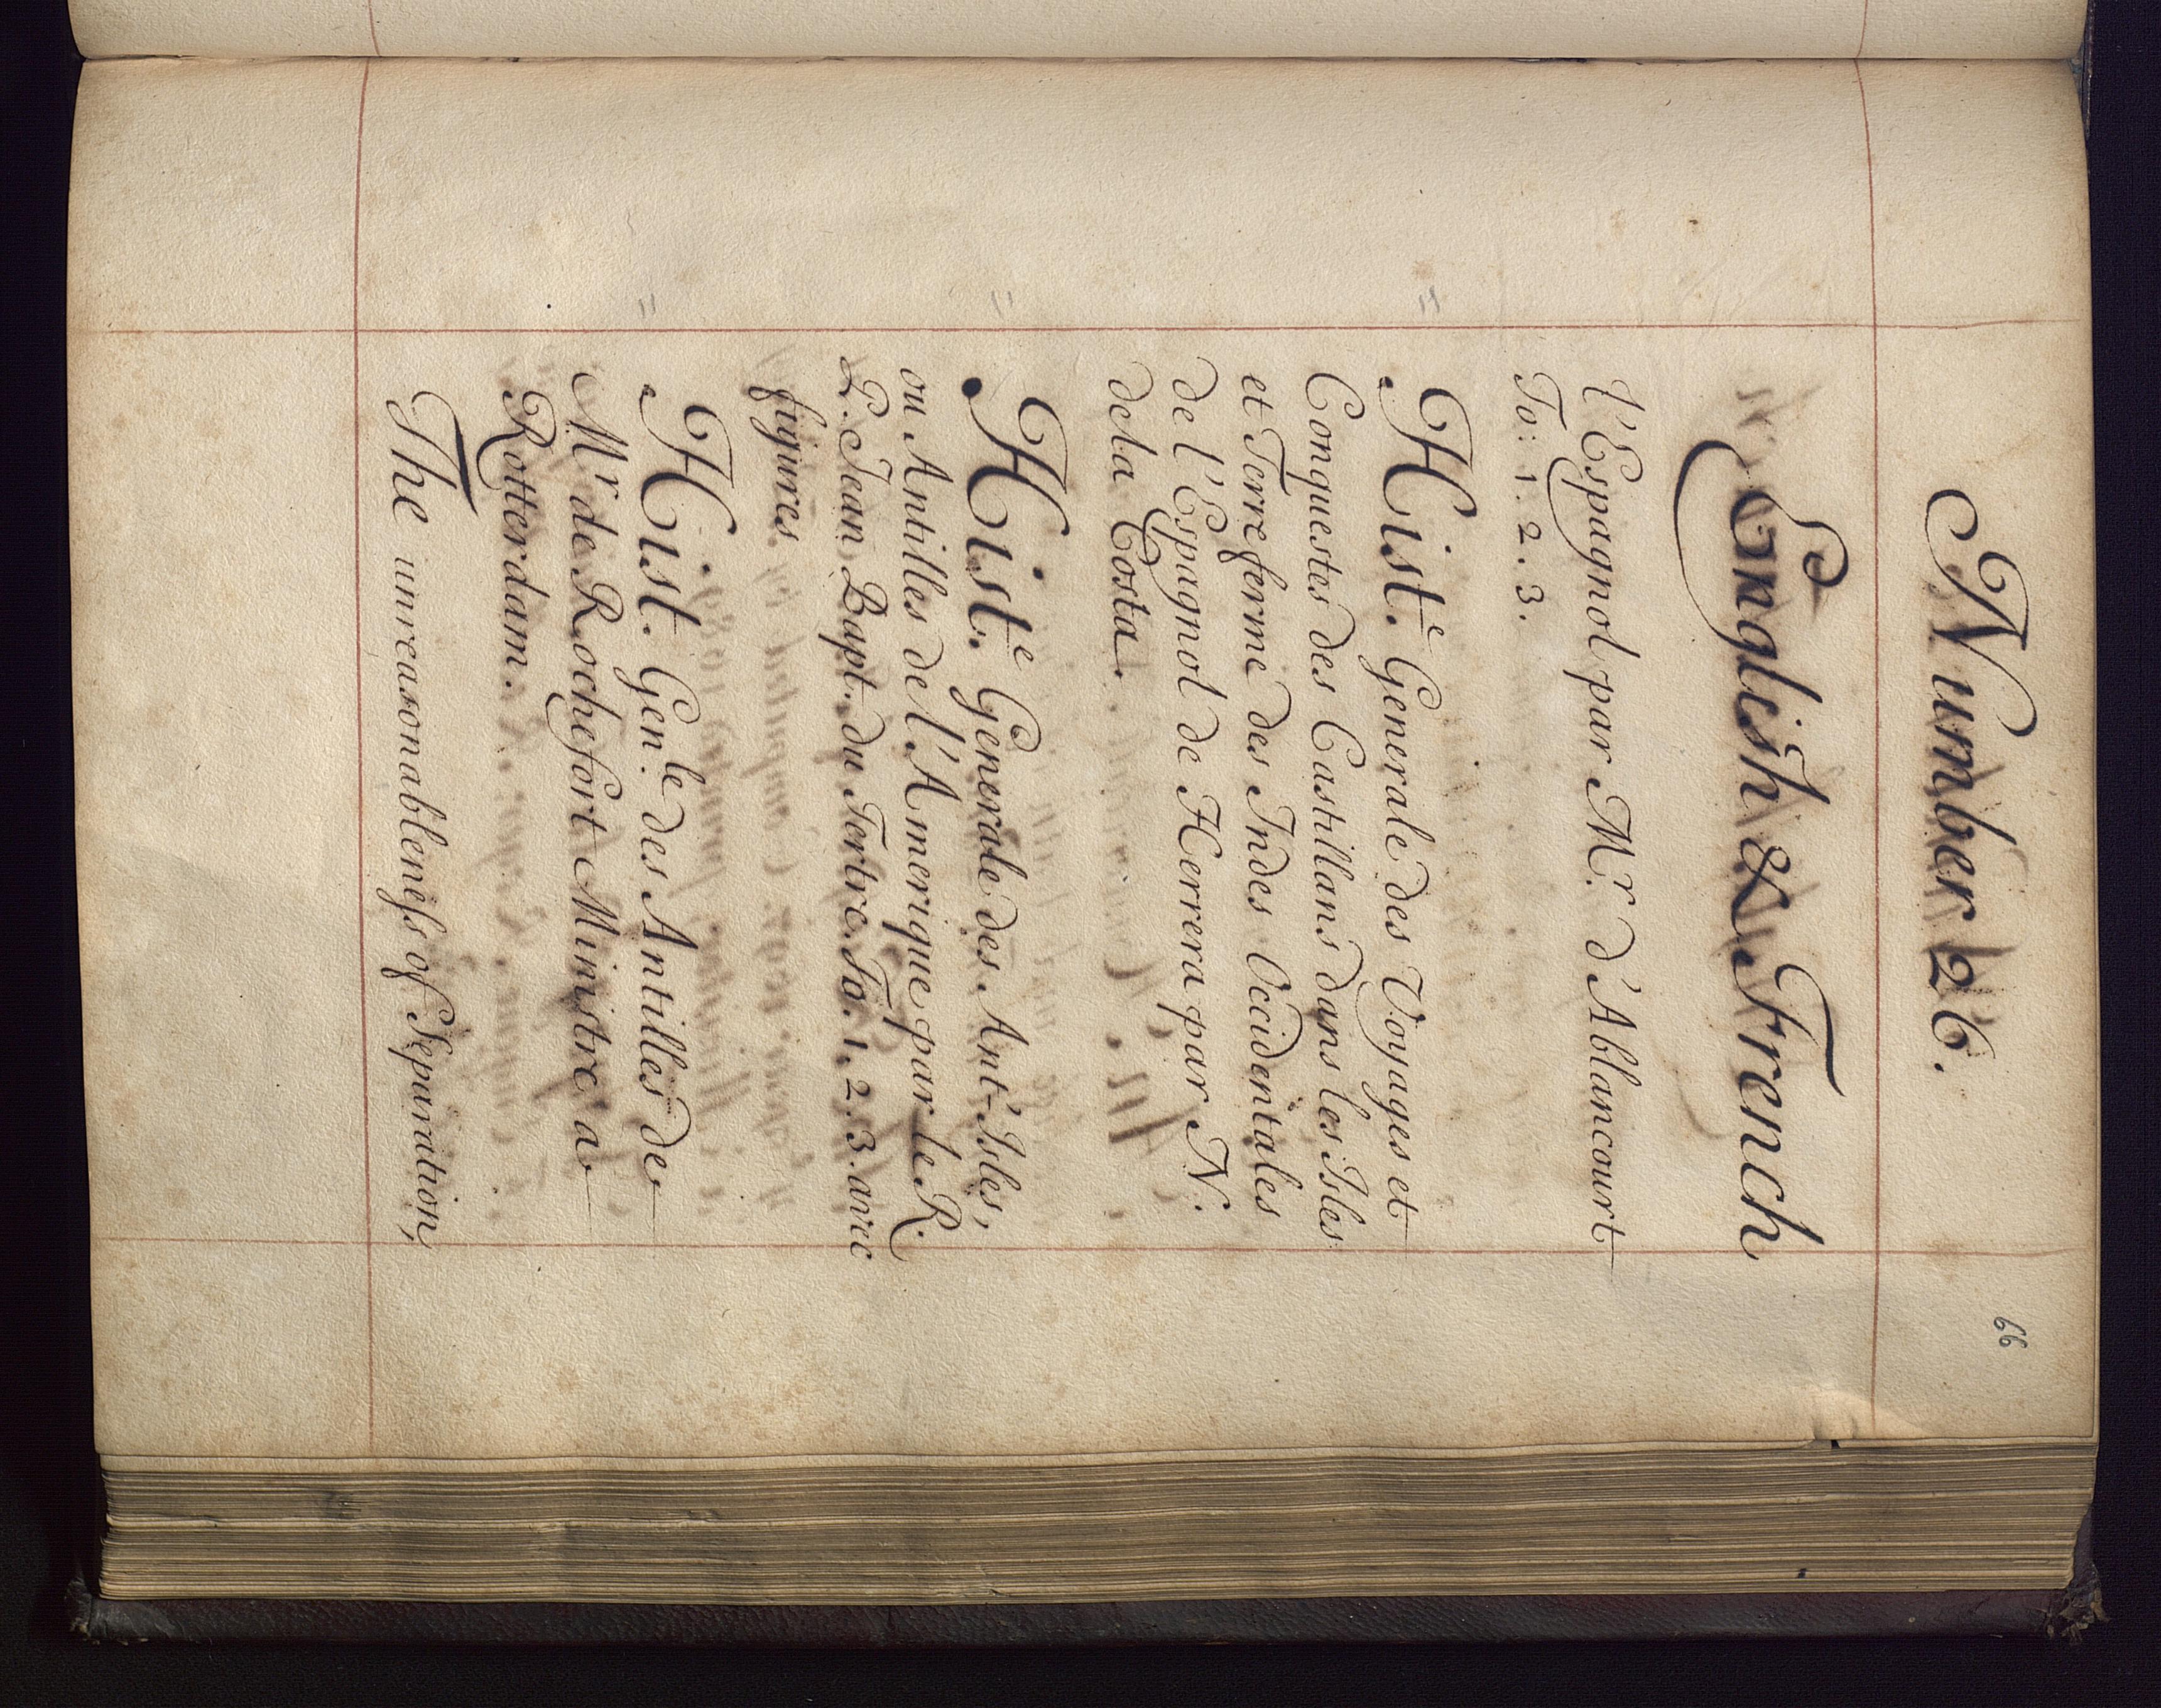 66
Number 26.
English & French
l'Espagnol par Mr. d'Ablancourt
To: 1. 2. 3.
Histe. Generale des Voyages et
Conquestes des Castillans dans les Isles
et Terre ferme des Indes Occidentales
de l'Espagnol de Herrera par N.
de la Costa.
Histe. Generale des Ant-Isles,
ou Antilles de l'Amerique par le R.
P. Jean Bapt. du Tertre. To. 1. 2. 3. avec
figures
Hist. Genle. des Antilles de
Mr de Rochefort Ministre a
Rotterdam.
The unreasonableness of Separation,